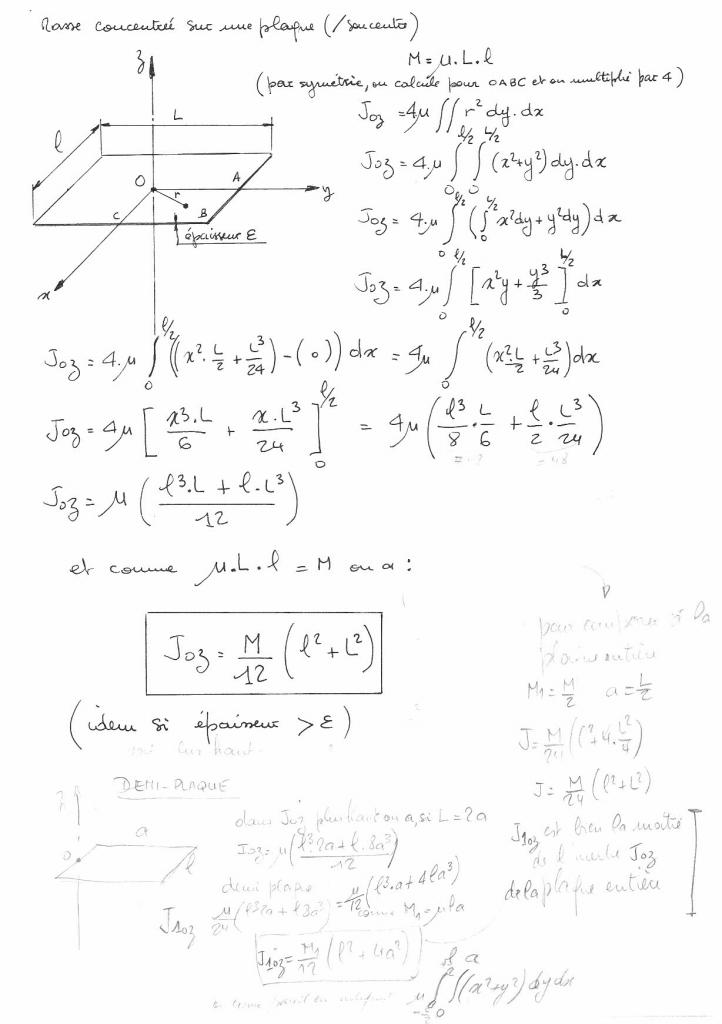 Masse concentrée sur une plaque (/son centre)
M = μ.L.l
(par symétrie, on calcule pour OABC et on multiplie par 4)
z
L
l
O
r
A
B
C
y
x
épaisseur ε
Joz = 4μ ∫∫ r² dy.dx
Joz = 4.μ ∫₀^{l/2} ∫₀^{L/2} (x²+y²) dy.dx
Joz = 4.μ ∫₀^{l/2} (∫₀^{L/2} x²dy + y²dy) dx
Joz = 4.μ ∫₀^{l/2} [x²y + y³/3]₀^{L/2} dx
Joz = 4.μ ∫₀^{l/2} ((x².L/2 + L³/24) - (0)) dx = 4μ ∫₀^{l/2} (x².L/2 + L³/24) dx
Joz = 4μ [x³.L/6 + x.L³/24]₀^{l/2} = 4μ (l³/8 . L/6 + l/2 . L³/24)
Joz = μ (l³.L + l.L³ / 12)
et comme μ.L.l = M on a :
Joz = M/12 (l² + L²)
(idem si épaisseur > ε)
pour comparer si la
plaine entière
M1 = M/2 a = L/2
J = M/24 (l² + 4.L²/4)
J = M/24 (l² + L²)
J1oz est bien la moitié
de l' Joz
de la plaque entière
DEMI-PLAQUE
z
a
o
l
dans Joz plus haut on a, si L = 2a
Joz = μ (l³.2a + l.8a³ / 12)
demi plaque
J1oz μ/24 (l³2a + l8a³) = μ/12 (l³.a + 4la³)
comme M1 = μla
J1oz = M1/12 (l² + 4a²)
μ ∫ ∫₀^{a} (x²+y²) dydx